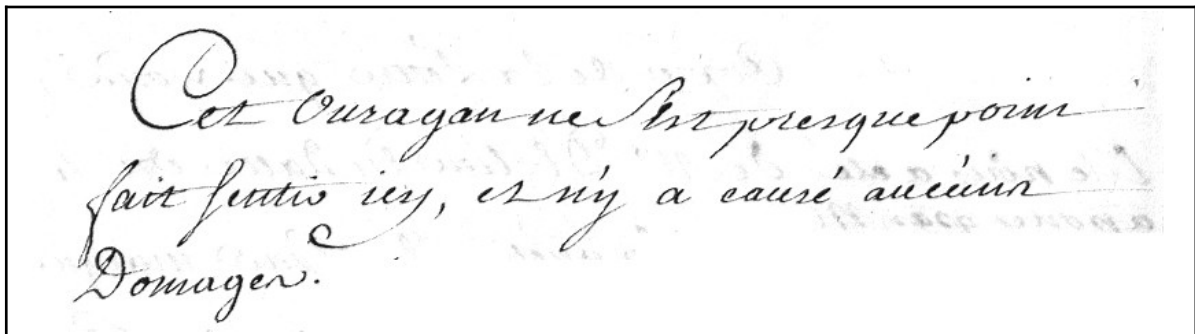 Cet Ouragan ne S'est presque point
fait Sentir icy, et n'y a causé aucuns
Domages.